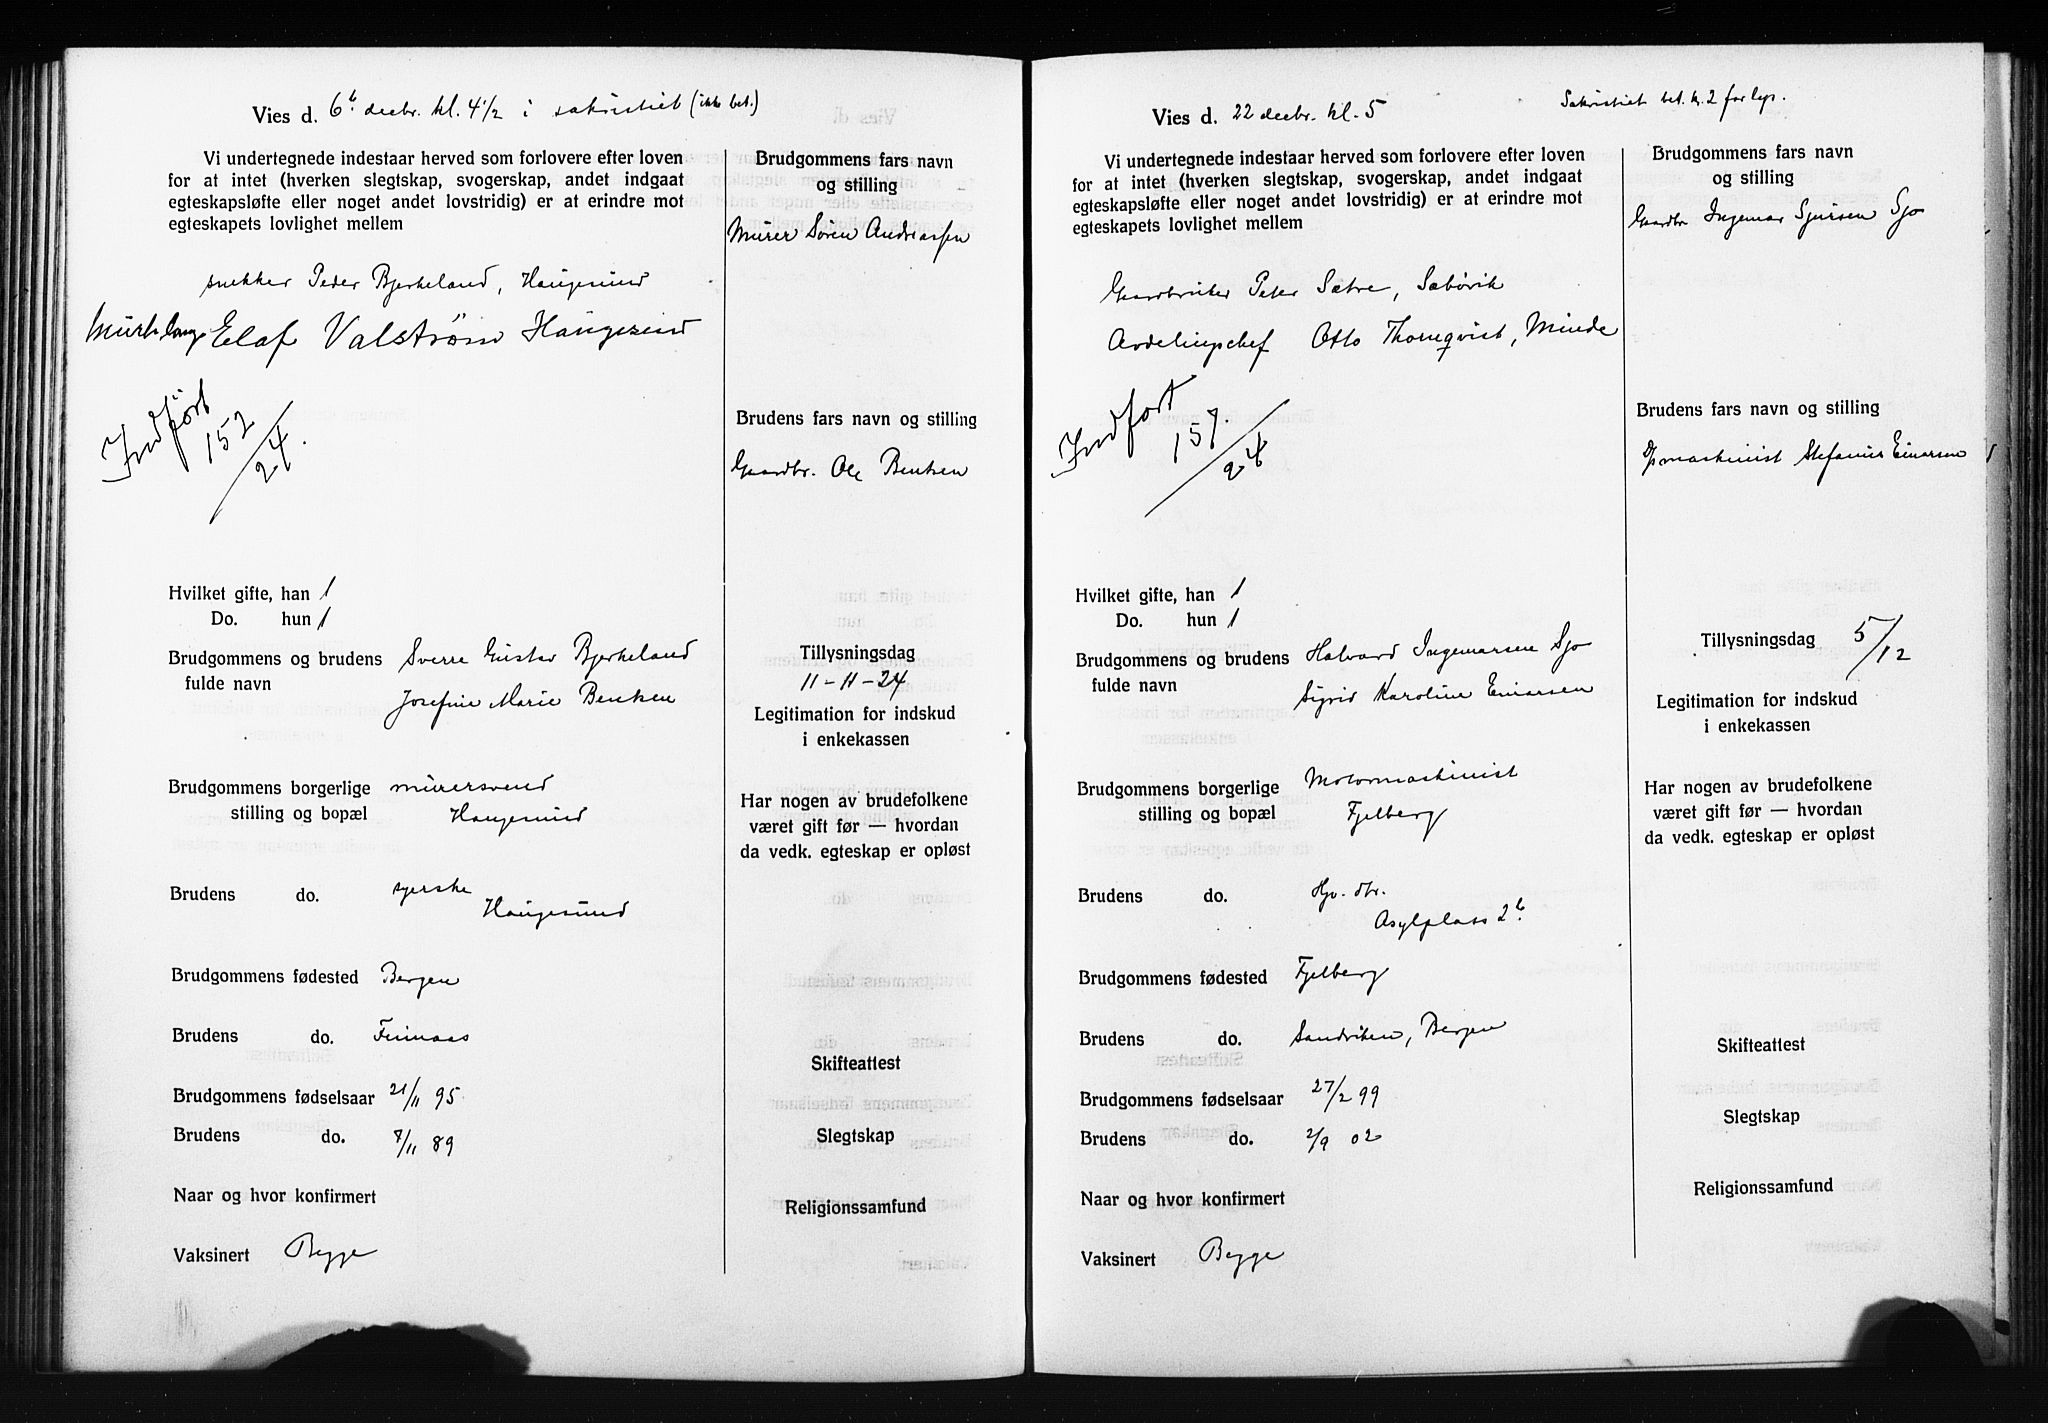 Vies d. 6te decbr. kl. 4 1/2 i sakristiet (ikke bet.)
Vi undertegnede indestaar herved som forlovere efter loven
for at intet (hverken slegtskap, svogerskap, andet indgaat
egteskapsløfte eller noget andet lovstridig) er at erindre mot
egteskapets lovlighet mellem
Brudgommens fars navn
og stilling
Murer Søren Andreassen
snekker Peder Bjerkeland, Haugesund
Elaf Valstrøm Haugesund
Indført
152
/24.
Brudens fars navn og stilling
Gaardbr. Ole Bentsen
Hvilket gifte, han 1
Do. hun 1
Brudgommens og brudens Sverre Gustav Bjerkeland
fulde navn Josefine Marie Bentsen
Tillysningsdag
11-11-24
Legitimation for indskud
i enkekassen
Brudgommens borgerlige murersvend
stilling og bopæl Haugesund
Har nogen av brudefolkene
været gift før — hvordan
da vedk. egteskap er opløst
Brudens do. syerske
Haugesund
Brudgommens fødested Bergen
Brudens do. Finnaas
Skifteattest
Brudgommens fødselsaar 21/11 95.
Brudens do. 7/11 89
Slegtskap
Naar og hvor konfirmert
Religionssamfund
Vaksinert Begge
Vies d. 22 decbr. kl. 5 Sakristiet bet. kr. 2 for lys.
Vi undertegnede indestaar herved som forlovere efter loven
for at intet (hverken slegtskap, svogerskap, andet indgaat
egteskapsløfte eller noget andet lovstridig) er at erindre mot
egteskapets lovlighet mellem
Brudgommens fars navn
og stilling
Gaardbr Ingemar Sjursen Sjo
Gaardbruker Peter Sætre, Sæbøvik
Avdelingschef Otto Thornqvist, Minde
Indført
157.
/24
Brudens fars navn og stilling
maskinist Stefanus Einarsen
Hvilket gifte, han 1
Do. hun 1
Brudgommens og brudens Halvard Ingemarsen Sjo
fulde navn Sigrid Karoline Einarsen
Tillysningsdag 5/12
Legitimation for indskud
i enkekassen
Brudgommens borgerlige Motormaskinist
stilling og bopæl Fjelberg
Har nogen av brudefolkene
været gift før — hvordan
da vedk. egteskap er opløst
Brudens do. Hjv. dtr.
Asylplass 2b.
Brudgommens fødested Fjelberg
Brudens do. Sandviken, Bergen
Skifteattest
Brudgommens fødselsaar 27/2 99
Brudens do. 2/9 02
Slegtskap
Naar og hvor konfirmert
Religionssamfund
Vaksinert Begge